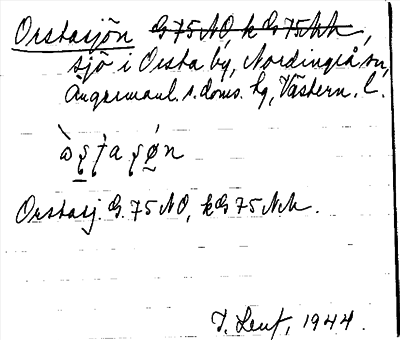 Orstasjön G 75 NO, k G 75 Nh,
sjö i Orsta by, Nordingrå sn,
Ångermanl. s. doms. hg, Västern. l.
Orstasj. G. 75 NO, kG 75 Nh.
1944.